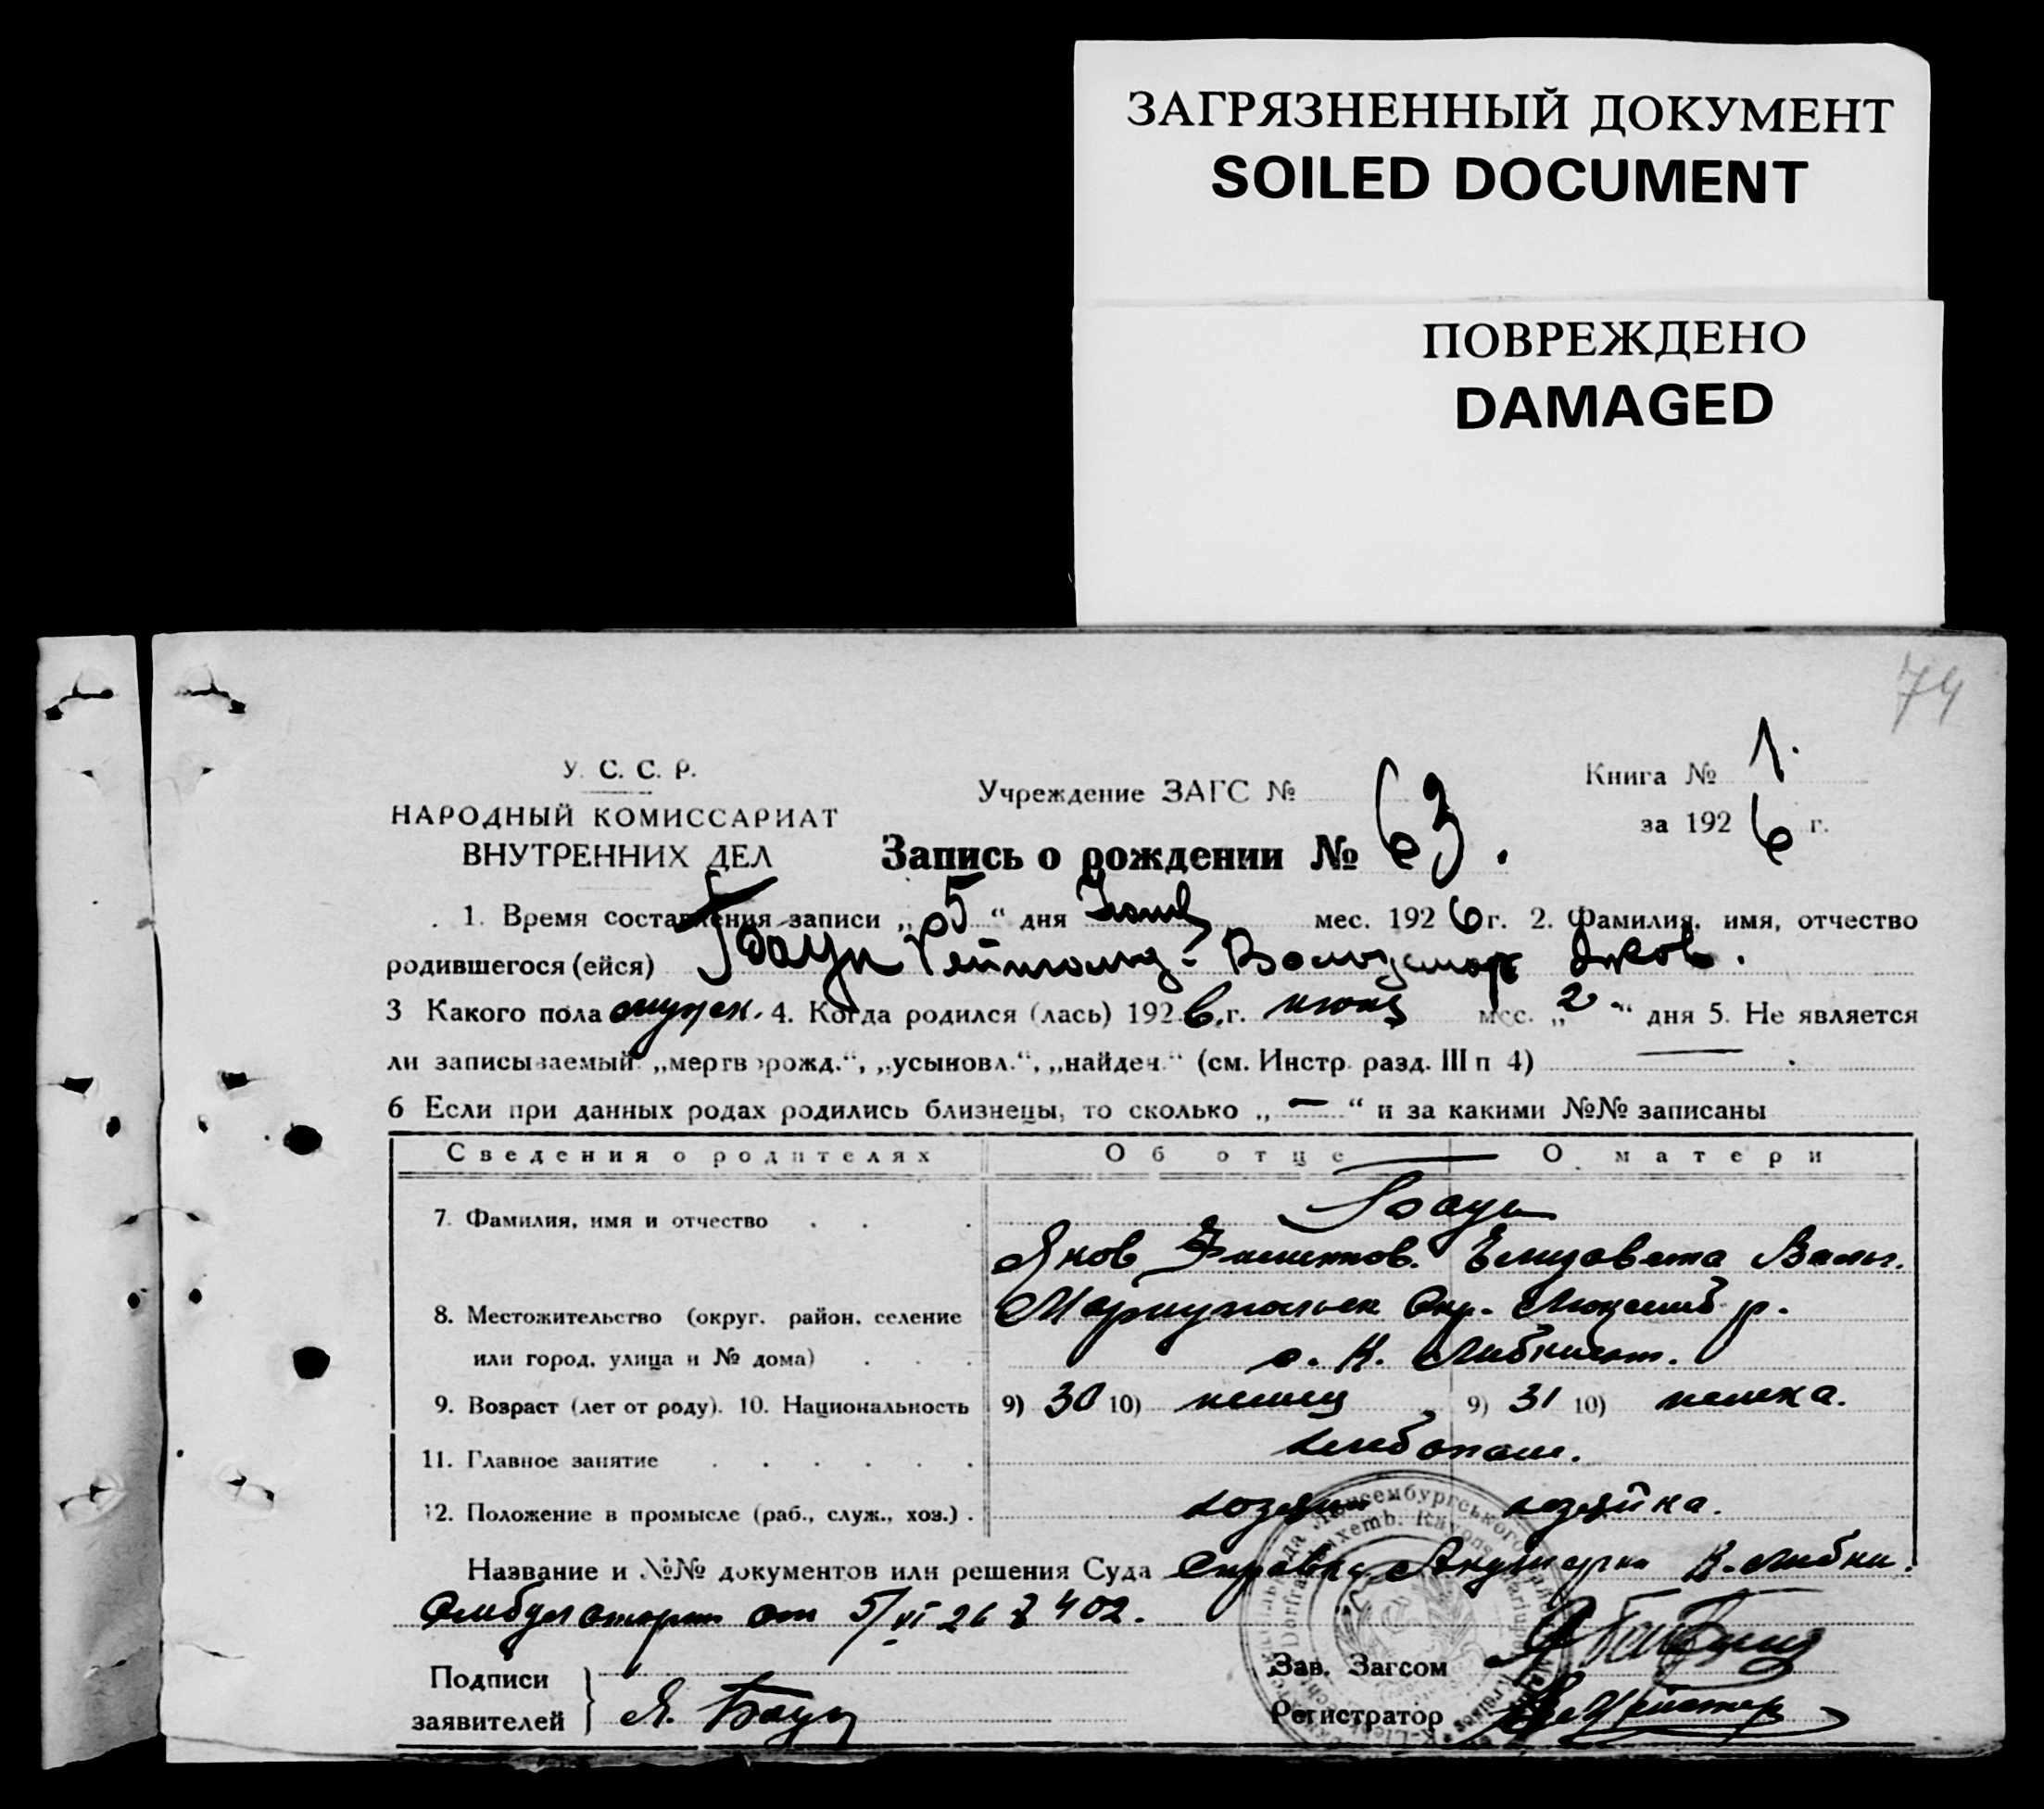 ЗАГРЯЗНЕННЫЙ ДОКУМЕНТ
SOILED DOCUMENT
ПОВРЕЖДЕНО
DAMAGED
74
У. С. С. Р.
НАРОДНЫЙ КОМИССАРИАТ
ВНУТРЕННИХ ДЕЛ
Учреждение ЗАГС №
Книга № 1.
за 1926 г.
Запись о рождении № 63.
1. Время составления записи „5“ дня мес. 1926 г. 2. Фамилия, имя, отчество
родившегося (ейся) Баун Вольдемар Яков.
3 Какого пола мужск. 4. Когда родился (лась) 1926. г. июня мес. „2“ дня 5. Не является
ли записываемый „мертворожд.“, „усыновл.“, „найден.“ (см. Инстр. разд. III п 4) —
6 Если при данных родах родились близнецы, то сколько „—“ и за какими №№ записаны
Сведения о родителях Об отце О матери
7. Фамилия, имя и отчество . . . Баун
Яков Филиппов. Елизавета Вильг.
8. Местожительство (округ, район, селение Мариупольск Окр. Люксемб р.
или город, улица и № дома) . . . с. К. Либкнехт.
9. Возраст (лет от роду). 10. Национальность 9) 30 10) немец 9) 31 10) немка.
11. Главное занятие . . . . . . хлебопаш.
12. Положение в промысле (раб., служ., хоз.) . хозяин хозяйка.
Название и №№ документов или решения Суда Справка Акушерки К. Либкн.
Амбулатории от 5/VI 26 402.
Подписи
заявителей } Я. Баун
Зав. Загсом
Регистратор